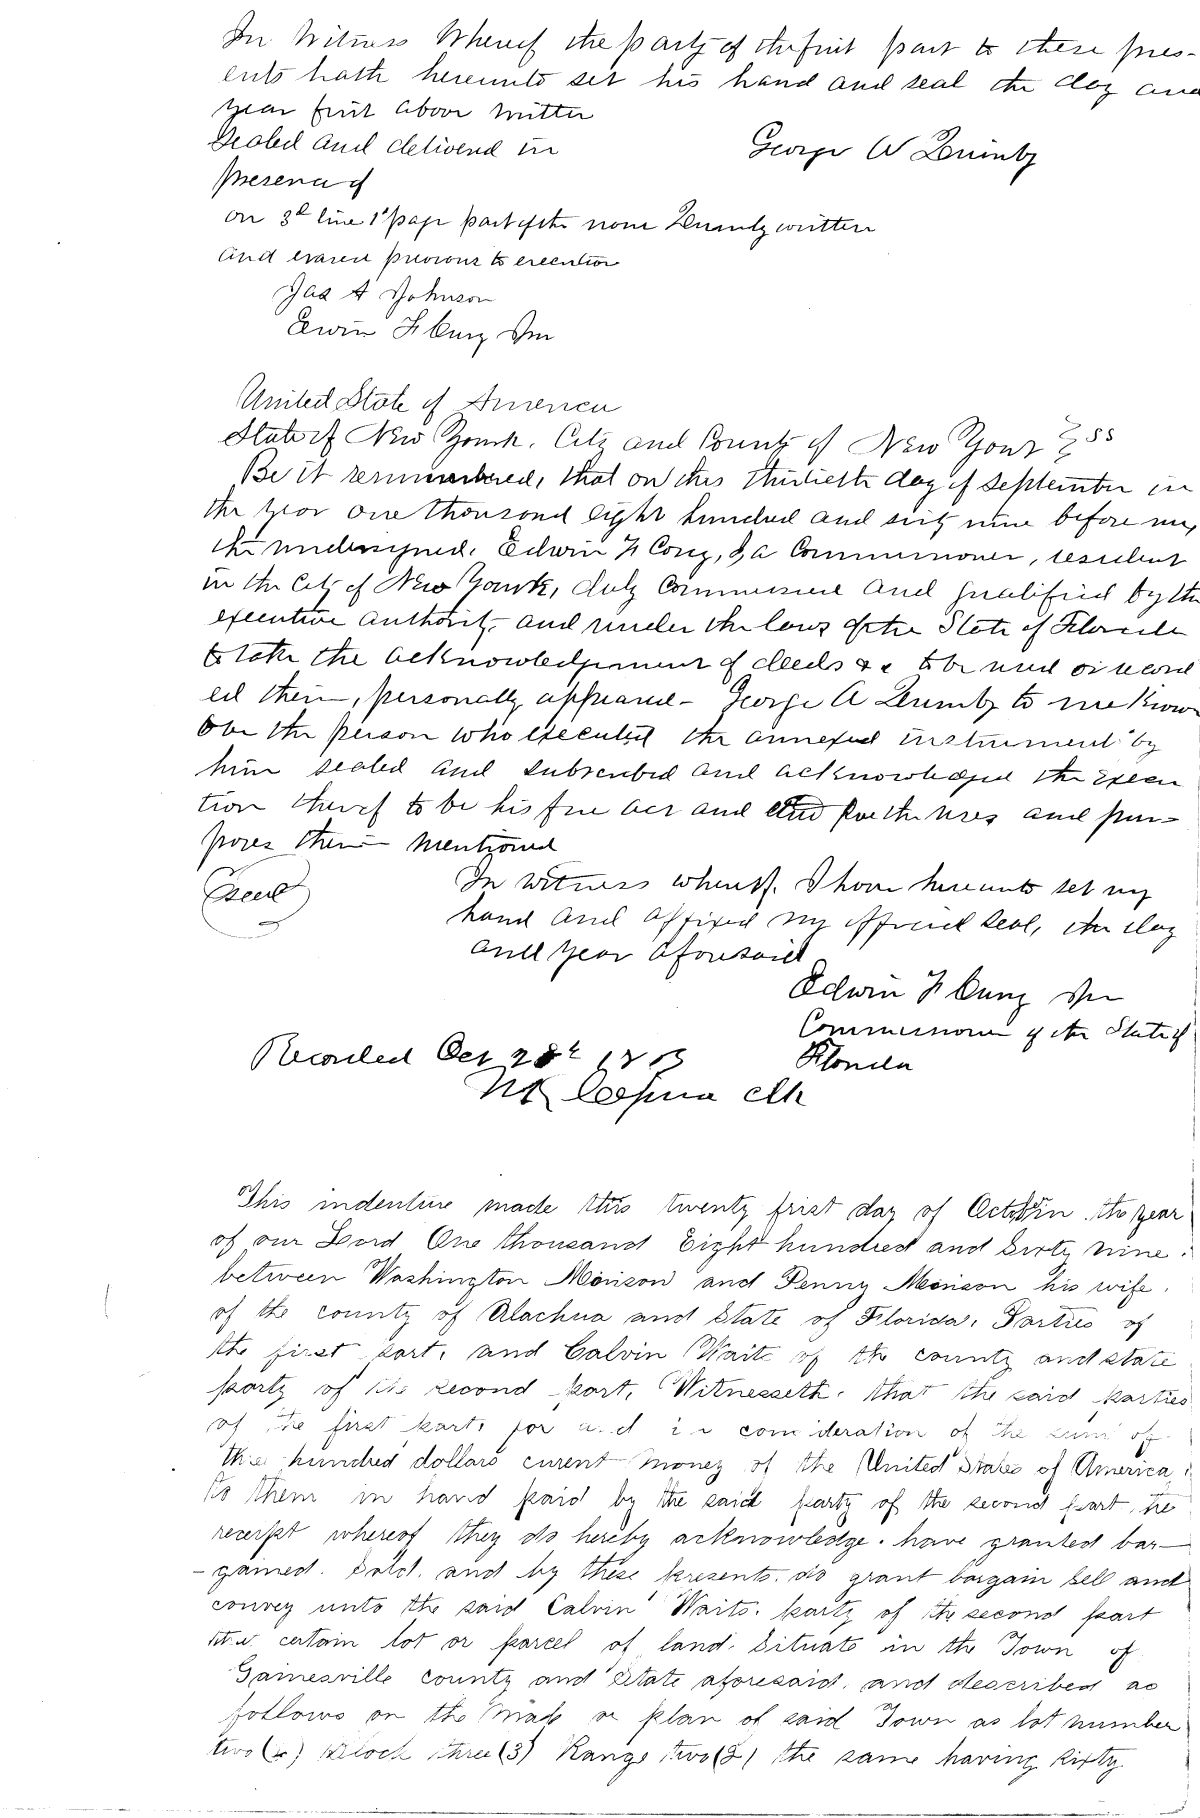 In Witness Whereof the party of the first part to these pres-
ents hath hereunto set his hand and seal the day and
year first above written
Sealed and delivered in
George W Quimby
presence of
on 3d line 1st page part of the name Quimby written
and erased previous to execution
Jas A Johnson
Edwin F Corey Jnr
United State of America
State of New York. City and County of New York } ss
Be it remembered, that on this thirtieth day of September in
the year one thousand eight hundred and sixty nine before me,
the undersigned, Edwin F Corey, Jr a Commissioner, resident
in the City of New York, duly Commissioned and qualified by the
executive authority and under the laws of the State of Florida
to take the acknowledgement of deeds &c to be used or record
ed therein, personally appeared - George A Quimby to me known
to be the person who executed the annexed instrument by
him sealed and subscribed and acknowledged the execu
tion thereof to be his free act and deed for the uses and pur-
poses therein mentioned
Seal
In witness whereof. I have hereunto set my
hand and affixed my official seal, the day
and year aforesaid
Edwin F Corey Jnr
Commissioner of the State of
Florida
Recorded Oct 28th
Clk
This indenture made this twenty frist day of Octobr in the year
of our Lord One thousand Eight hundred and Sixty nine.
between Washington Morison and Penny Morison his wife.
of the county of Alachua and State of Florida, Parties of
the first part, and Calvin Waits of the county and state
party of the second part, Witnesseth. that the said parties
of the first part, for and in consideration of the sum of
three hundred dollars curent money of the United States of America,
to them in hand paid by the said party of the second part, the
receipt whereof they do hereby acknowledge. have granted bar-
-gained. Sold. and by these presents. do grant bargain sell and
convey unto the said Calvin Waits. party of the second part
the certain lot or parcel of land. Situate in the Town of
Gainesville county and State aforesaid. and described as
follows on the Map or plan of said Town as lot number
two (2) Block three (3) Range two (2) the same having sixty